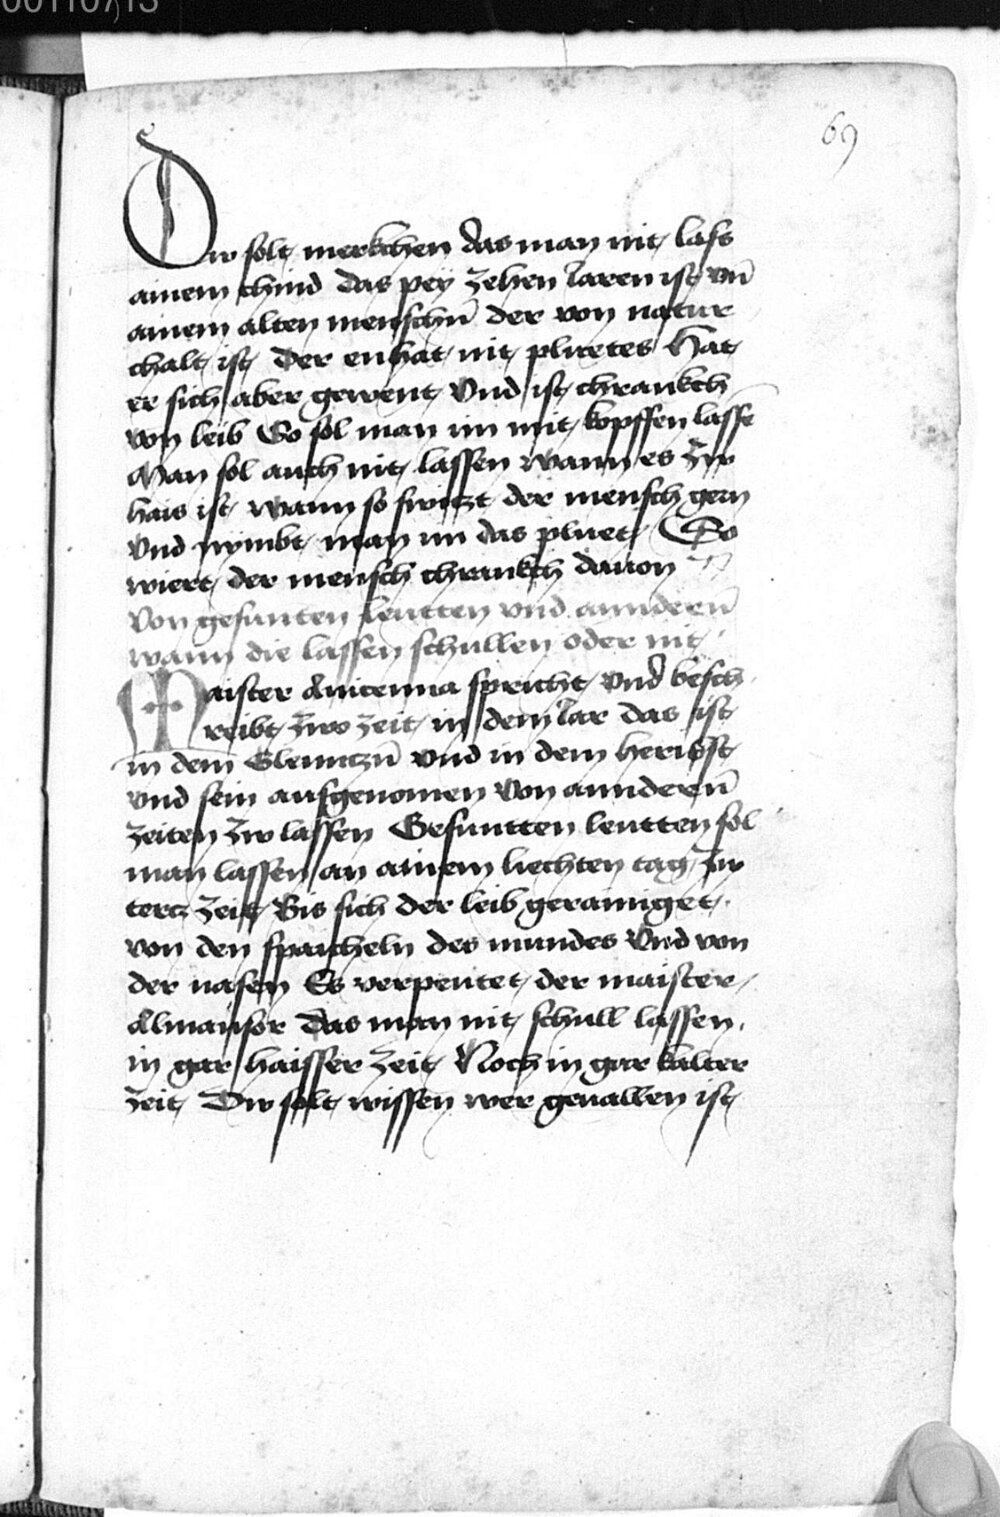 00110713
69
Dw solt merkchen das man nit lass
ainem chind das pey zehen Jaren ist vn̄
ainem alten menschn̄ der von natur
chalt ist der enhat nit pluetes Hat
er sich aber gewent Vnd ist chrankch
von leib So sol man im mit kopffen lasse
Man sol auch nit lassen wann es zw
hais ist wann so switzt der mensch gern
Vnd nymbt man im das pluet So
wiert der mensch chrankch dauon
Von gesunten leutten vnd annderen̄
wann die lassen schullen oder nit
Maister Auicenna spricht vnd besch
reibt zwo zeit in dem Jar das ist
in dem Glenntzn̄ vnd in dem heribst
vnd sein aufgenomen Von annderen̄
zeiten zw lassen Gesuntten leutten sol
man lassen an ainem liechten tag zw
tercz zeit Bis sich der leib gerainiget
von den spaicheln des mundes Vnd von
der nasen Es verpeutet der maister
Almansor das man nit schull lassen
in gar haisser zeit Noch in gar kalter
zeit Dw solt wissen wer geuallen ist